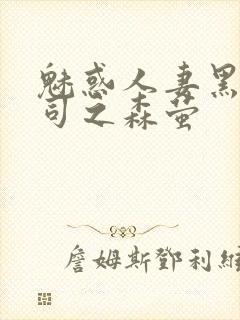 魅惑人妻黑
司之森萤
詹姆斯鄧利維